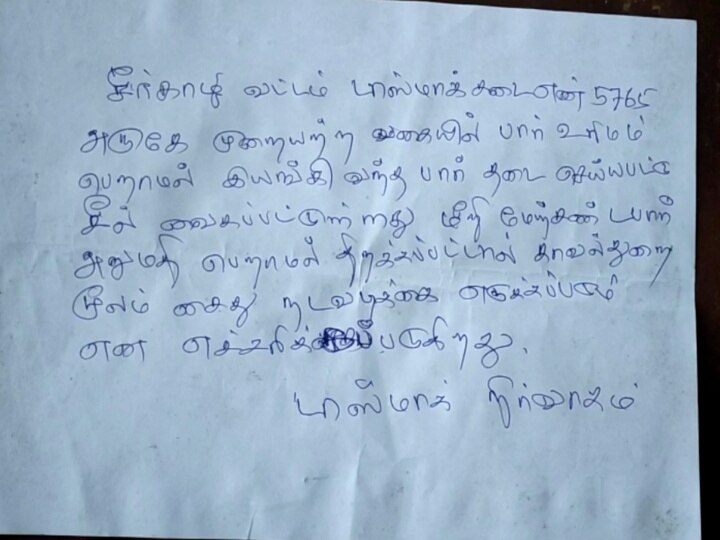 சீர்காழி வட்டம் டாஸ்மாக் கடை எண் 5765
அருகே முறையற்ற வகையில் பார் உரிமம்
பெறாமல் இயங்கி வந்த பார் தடை செய்யபட்டு
சீல் வைகப்பட்டுள்ளது மீறி மேற்கண்ட பார்
அனுமதி பெறாமல் திறக்கப்பட்டால் காவல்துறை
மூலம் கைது நடவடிக்கை எடுக்கப்படும்
என எச்சரிக்கப்படுகிறது.
டாஸ்மாக் நிர்வாகம்